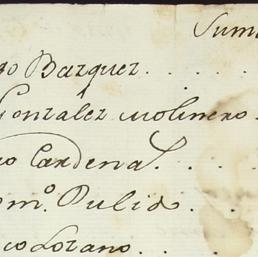 Sum
go Bazquez . . . .
Gonzalez Molinero .
co Cardenal . . .
om.º Pulido . . .
co Lozano . . .